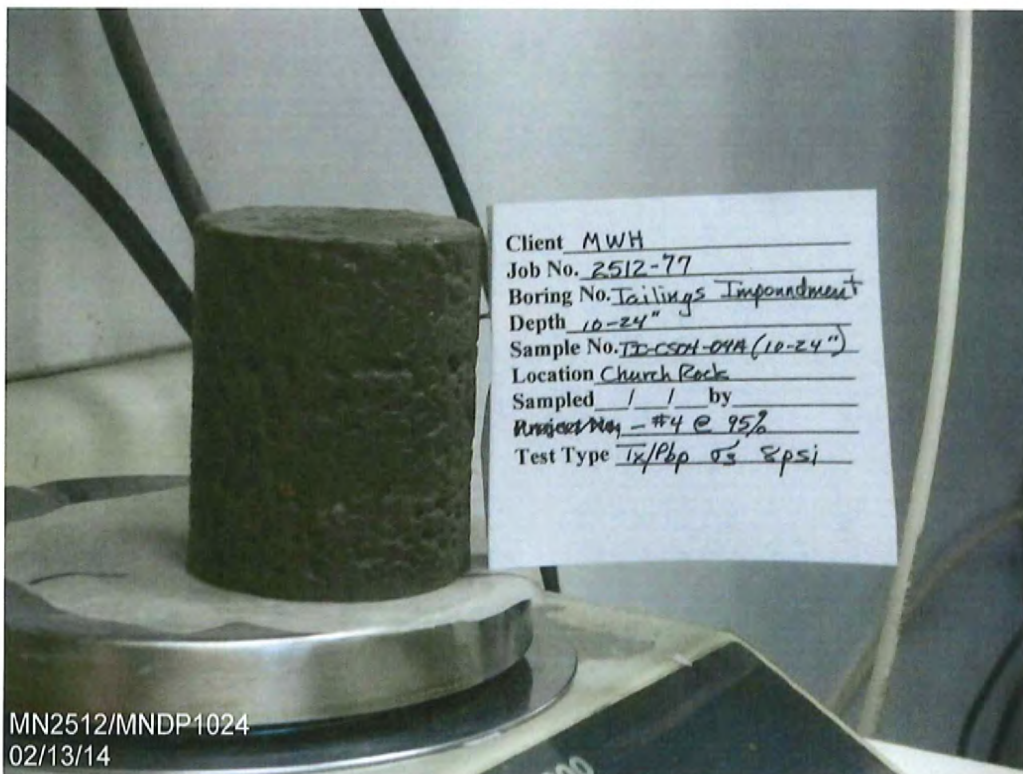 Client MWH
Job No. 2512-77
Boring No. Tailings Impoundment
Depth 10-24"
Sample No. TI-CS04-04A (10-24")
Location Church Rock
Sampled __/__/__ by
- #4 @ 95%
Test Type Tx/Pbp σ3' 8psi
MN2512/MNDP1024
02/13/14